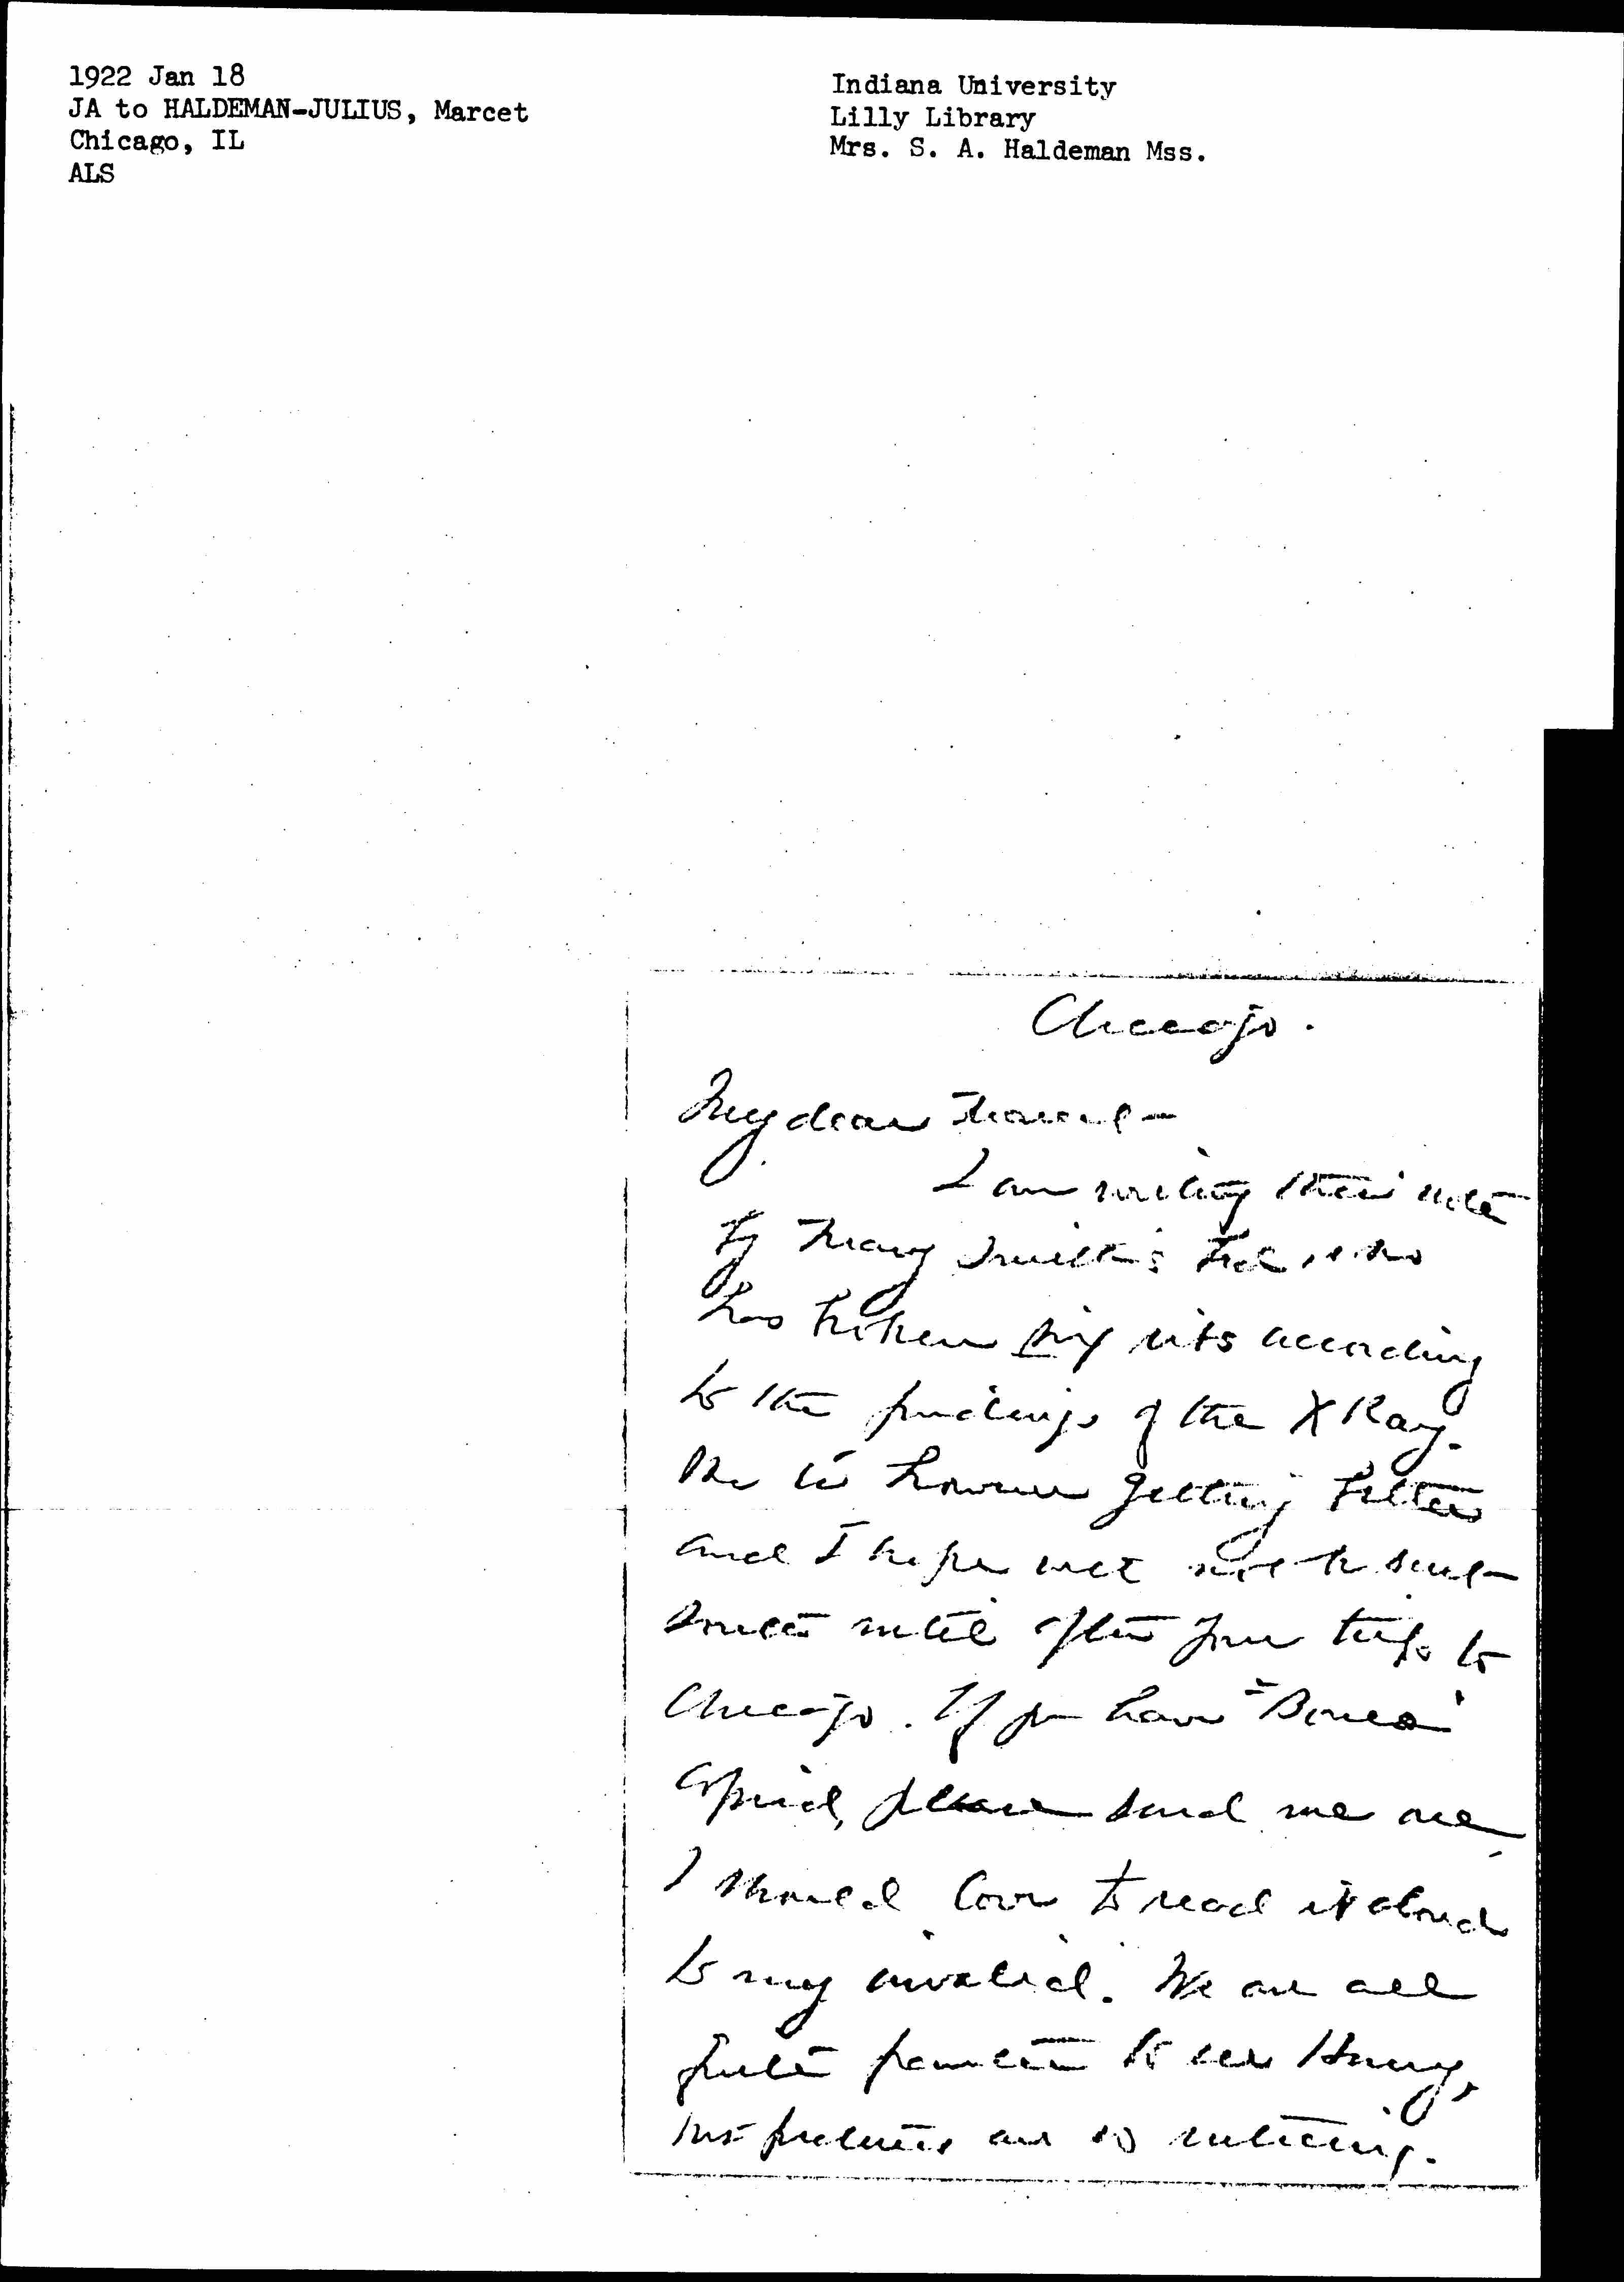 1922 Jan 18
JA to HALDEMAN-JULIUS, Marcet
Chicago, IL
ALS
Indiana University
Lilly Library
Mrs. S. A. Haldeman Mss.
Chicago.
My dear Marcet -
I am writing this note
by Mary Smith's bed, who
has broken six ribs according
to the findings of the X Ray.
She is however getting better
and I hope will not be sent
South until after your trip to
Chicago. If you have
copied, please send me one
I should love to read it aloud
to my invalid. We are all
quite frantic to see Henry,
his pictures are so enticing.